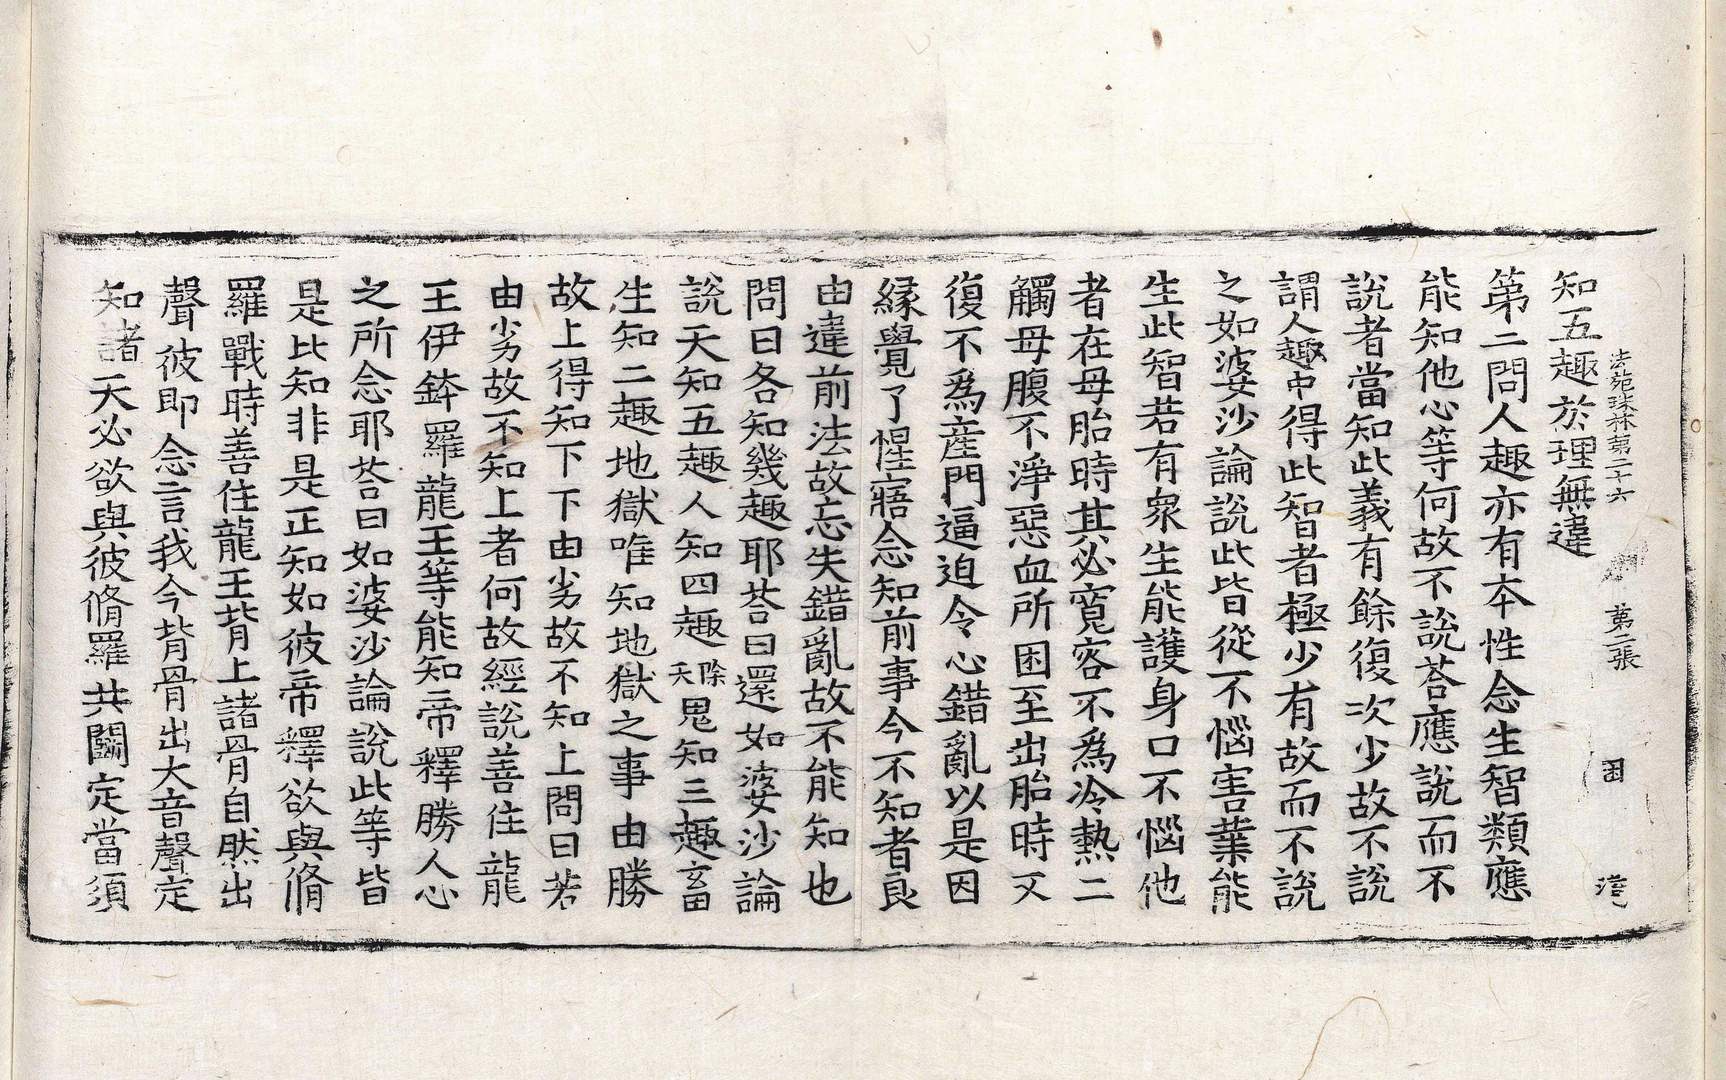 法苑珠林第二十六　第二張　困
知五趣於理無違
第二問人趣亦有本性念生智類應
能知他心等何故不說荅應說而不
說者當知此義有餘復次少故不說
謂人趣中得此智者極少有故而不說
之如婆沙論說此皆從不惱害業能
生此智若有衆生能護身口不惱他
者在母胎時其必寬容不爲冷熱二
觸母腹不淨惡血所困至出胎時又
復不爲産門逼迫令心錯亂以是因
緣覺了惺寤念知前事今不知者良
由違前法故忘失錯亂故不能知也
問曰各知幾趣耶荅曰還如婆沙論
說天知五趣人知四趣除天鬼知三趣畜
生知二趣地獄唯知地獄之事由勝
故上得知下下由劣故不知上問曰若
由劣故不知上者何故經說善住龍
王伊鉢羅龍王等能知帝釋勝人心
之所念耶荅曰如婆沙論說此等皆
是比知非是正知如彼帝釋欲與脩
羅戰時善住龍王背上諸骨自然出
聲彼即念言我今背骨出大音聲定
知諸天必欲與彼脩羅共鬪定當須